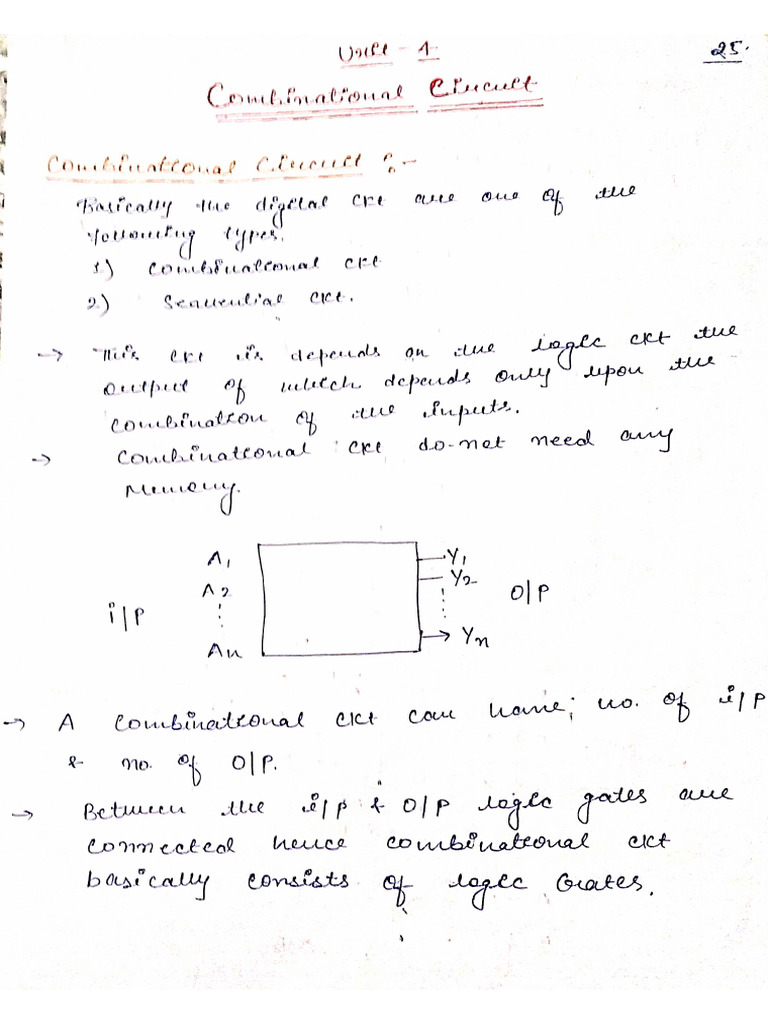 Unit - 4
25.
Combinational Circuit
Combinational Circuit :-
Basically the digital ckt are one of the
following types.
1) Combinational ckt
2) Sequential ckt.
→ This ckt is depends on the logic ckt the
output of which depends only upon the
combination of the inputs.
→ Combinational ckt do-not need any
Memory.
A1 Y1
A2 Y2
i/p O/P
An Yn
→ A combinational ckt can have; no. of i/p
& no. of O/P.
→ Between the i/p & O/P logic gates are
connected hence combinational ckt
basically consists of logic Gates.